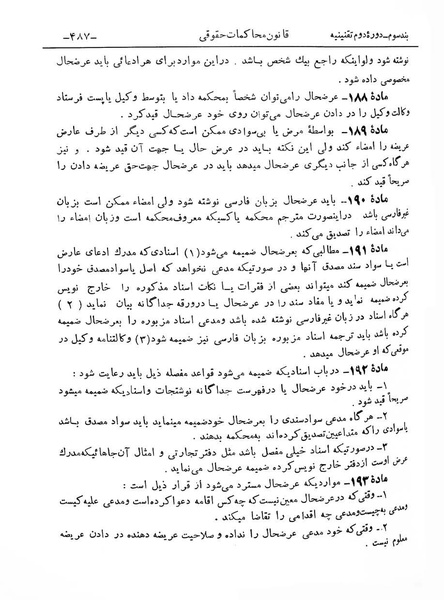 بند سوم ـ دورهٔ دوم تقنینیه
قانون محاکمات حقوقی
ـ۴۸۷ـ
نوشته شود ولو اینکه راجع بیك شخص باشد . در این موارد برای هر ادعائی باید عرضحال
مخصوصی داده شود
مادهٔ ۱۸۸ـ عرضحال را میتوان شخصاً بمحکمه داد یا بتوسط وکیل یا پست فرستاد
وکالت وکیل را در دادن عرضحال می‌توان روی خود عرضحال قید کرد .
مادهٔ ۱۸۹ـ بواسطهٔ مرض یا بی‌سوادی ممکن است که کسی دیگر از طرف عارض
عریضه را امضاء کند ولی این نکته باید در عرض حال با جهت آن قید شود . و نیز
هرگاه کسی از جانب دیگری عرضحال میدهد باید در عرضحال جهت حق عریضه دادن را
صریحاً قید کند .
مادهٔ ۱۹۰ـ . باید عرضحال بزبان فارسی نوشته شود ولی امضاء ممکن است بزبان
غیرفارسی باشد در اینصورت مترجم محکمه یا کسیکه معروف محکمه است و زبان امضاء را
می‌داند امضاء را تصدیق می‌کند .
مادهٔ ۱۹۱ـ مطالبی که بعرضحال ضمیمه می‌شود (۱) اسنادی که مدرك ادعای عارض
است یا سواد سند مصدق آنها و در صورتیکه مدعی نخواهد که اصل یا سواد مصدق خود را
بعرضحال ضمیمه کند میتواند بعضی از فقرات یا نکات اسناد مذکوره را خارج نویس
کرده ضمیمه نماید و یا مفاد سند را در عرضحال یا در ورقه جداگانه بیان نماید ( ۲ )
هرگاه اسناد در زبان غیرفارسی نوشته شده باشد و مدعی اسناد مزبوره را بعرضحال ضمیمه
کرده باشد باید ترجمه اسناد مزبوره بزبان فارسی نیز ضمیمه شود (۳) وکالتنامه وکیل در
موقعی که او عرضحال میدهد .
مادهٔ ۱۹۲ـ در باب اسنادیکه ضمیمه می‌شود قواعد مفصله ذیل باید رعایت شود :
۱ـ باید در خود عرضحال یا در فهرست جداگانه نوشتجات و اسنادیکه ضمیمه میشود
صریحاً قید شود .
۲ـ هرگاه مدعی سواد سندی را بعرضحال خود ضمیمه مینماید باید سواد مصدق باشد
یا سوادی را که متداعیین تصدیق کرده‌اند به محکمه بدهند .
۳ـ در صورتیکه اسناد خیلی مفصل باشد مثل دفتر تجارتی و امثال آن جاهائیکه مدرك
عرض اوست از دفتر خارج نویس کرده ضمیمه عرضحال می‌نماید .
مادهٔ ۱۹۳ـ مواردیکه عرضحال مسترد می‌شود از قرار ذیل است :
۱ـ وقتی که در عرضحال معین نیست که چه کس اقامه دعوا کرده است و مدعی علیه کیست
و مدعی به چیست و مدعی چه اقدامی را تقاضا میکند .
۲ـ وقتی که خود مدعی عرضحال را نداده و صلاحیت عریضه دهنده در دادن عریضه
معلوم نیست .